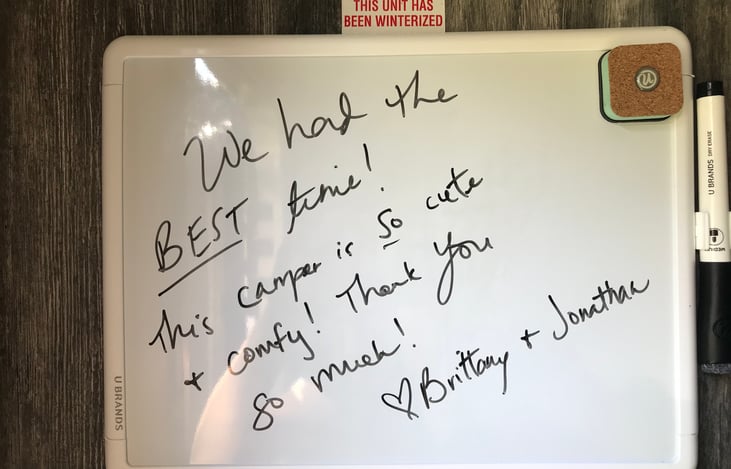 THIS UNIT HAS
BEEN WINTERIZED
We had the
BEST time!
This camper is so cute
+ comfy! Thank you
so much!
♡ Brittany + Jonathan
U BRANDS
U BRANDS DRY ERASE